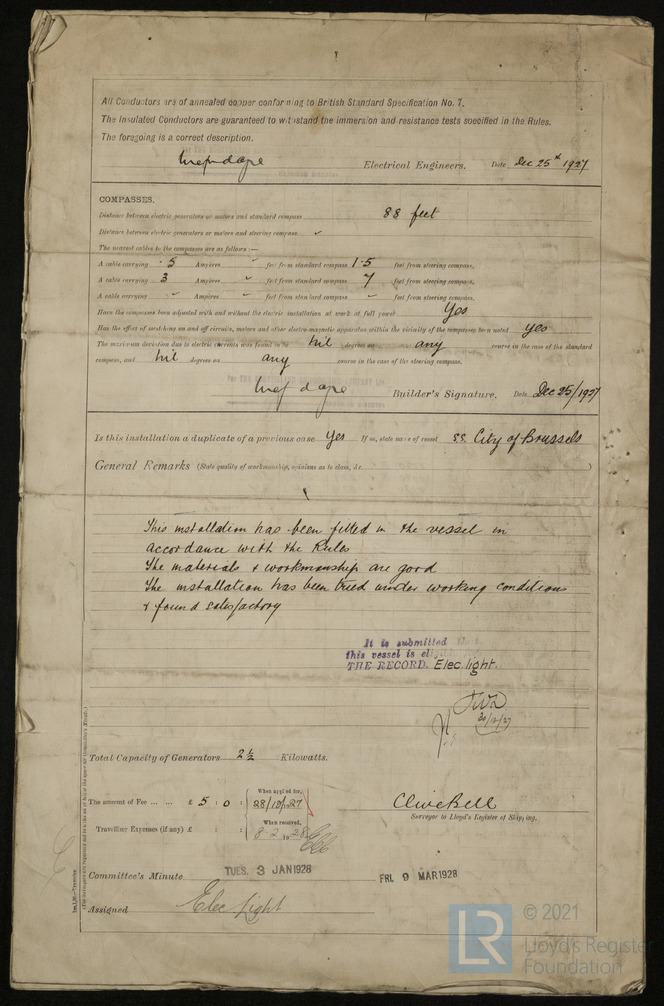 All Conductors are of annealed copper conforming to British Standard Specification No. 7.
The Insulated Conductors are guaranteed to withstand the immersion and resistance tests specified in the Rules.
The foregoing is a correct description.
Electrical Engineers. Date Dec 25th 1927
COMPASSES.
Distance between electric generators or motors and standard compass 88 feet
Distance between electric generators or motors and steering compass ✓
The nearest cables to the compasses are as follows:—
A cable carrying .5 Ampères feet from standard compass 1.5 feet from steering compass.
A cable carrying 3 Ampères feet from standard compass 7 feet from steering compass.
A cable carrying Ampères feet from standard compass feet from steering compass.
Have the compasses been adjusted with and without the electric installation at work at full power Yes
Has the effect of switching on and off circuits, motors and other electro-magnetic apparatus within the vicinity of the compasses been noted yes
The maximum deviation due to electric currents was found to be nil degrees on any course in the case of the standard
compass, and nil degrees on any course in the case of the steering compass.
Builder's Signature. Date Dec 25/1927
Is this installation a duplicate of a previous case Yes If so, state name of vessel SS. City of Brussels
General Remarks (State quality of workmanship, opinions as to class, &c.)
This installation has been fitted in the vessel in
accordance with the Rules
The materials & workmanship are good
The installation has been tried under working conditions
& found satisfactory
It is submitted that
this vessel is
THE RECORD. Elec. light.
30/12/27
Total Capacity of Generators 2½ Kilowatts.
The amount of Fee ... ... £ 5 : 0 : When applied for, 28/12/27
Travelling Expenses (if any) £ : : When received, 8.2.28
Clive Bell
Surveyor to Lloyd's Register of Shipping.
Committee's Minute TUES. 3 JAN 1928 FRI. 9 MAR 1928
Assigned Elec Light
© 2021
Lloyd's Register
Foundation
LR